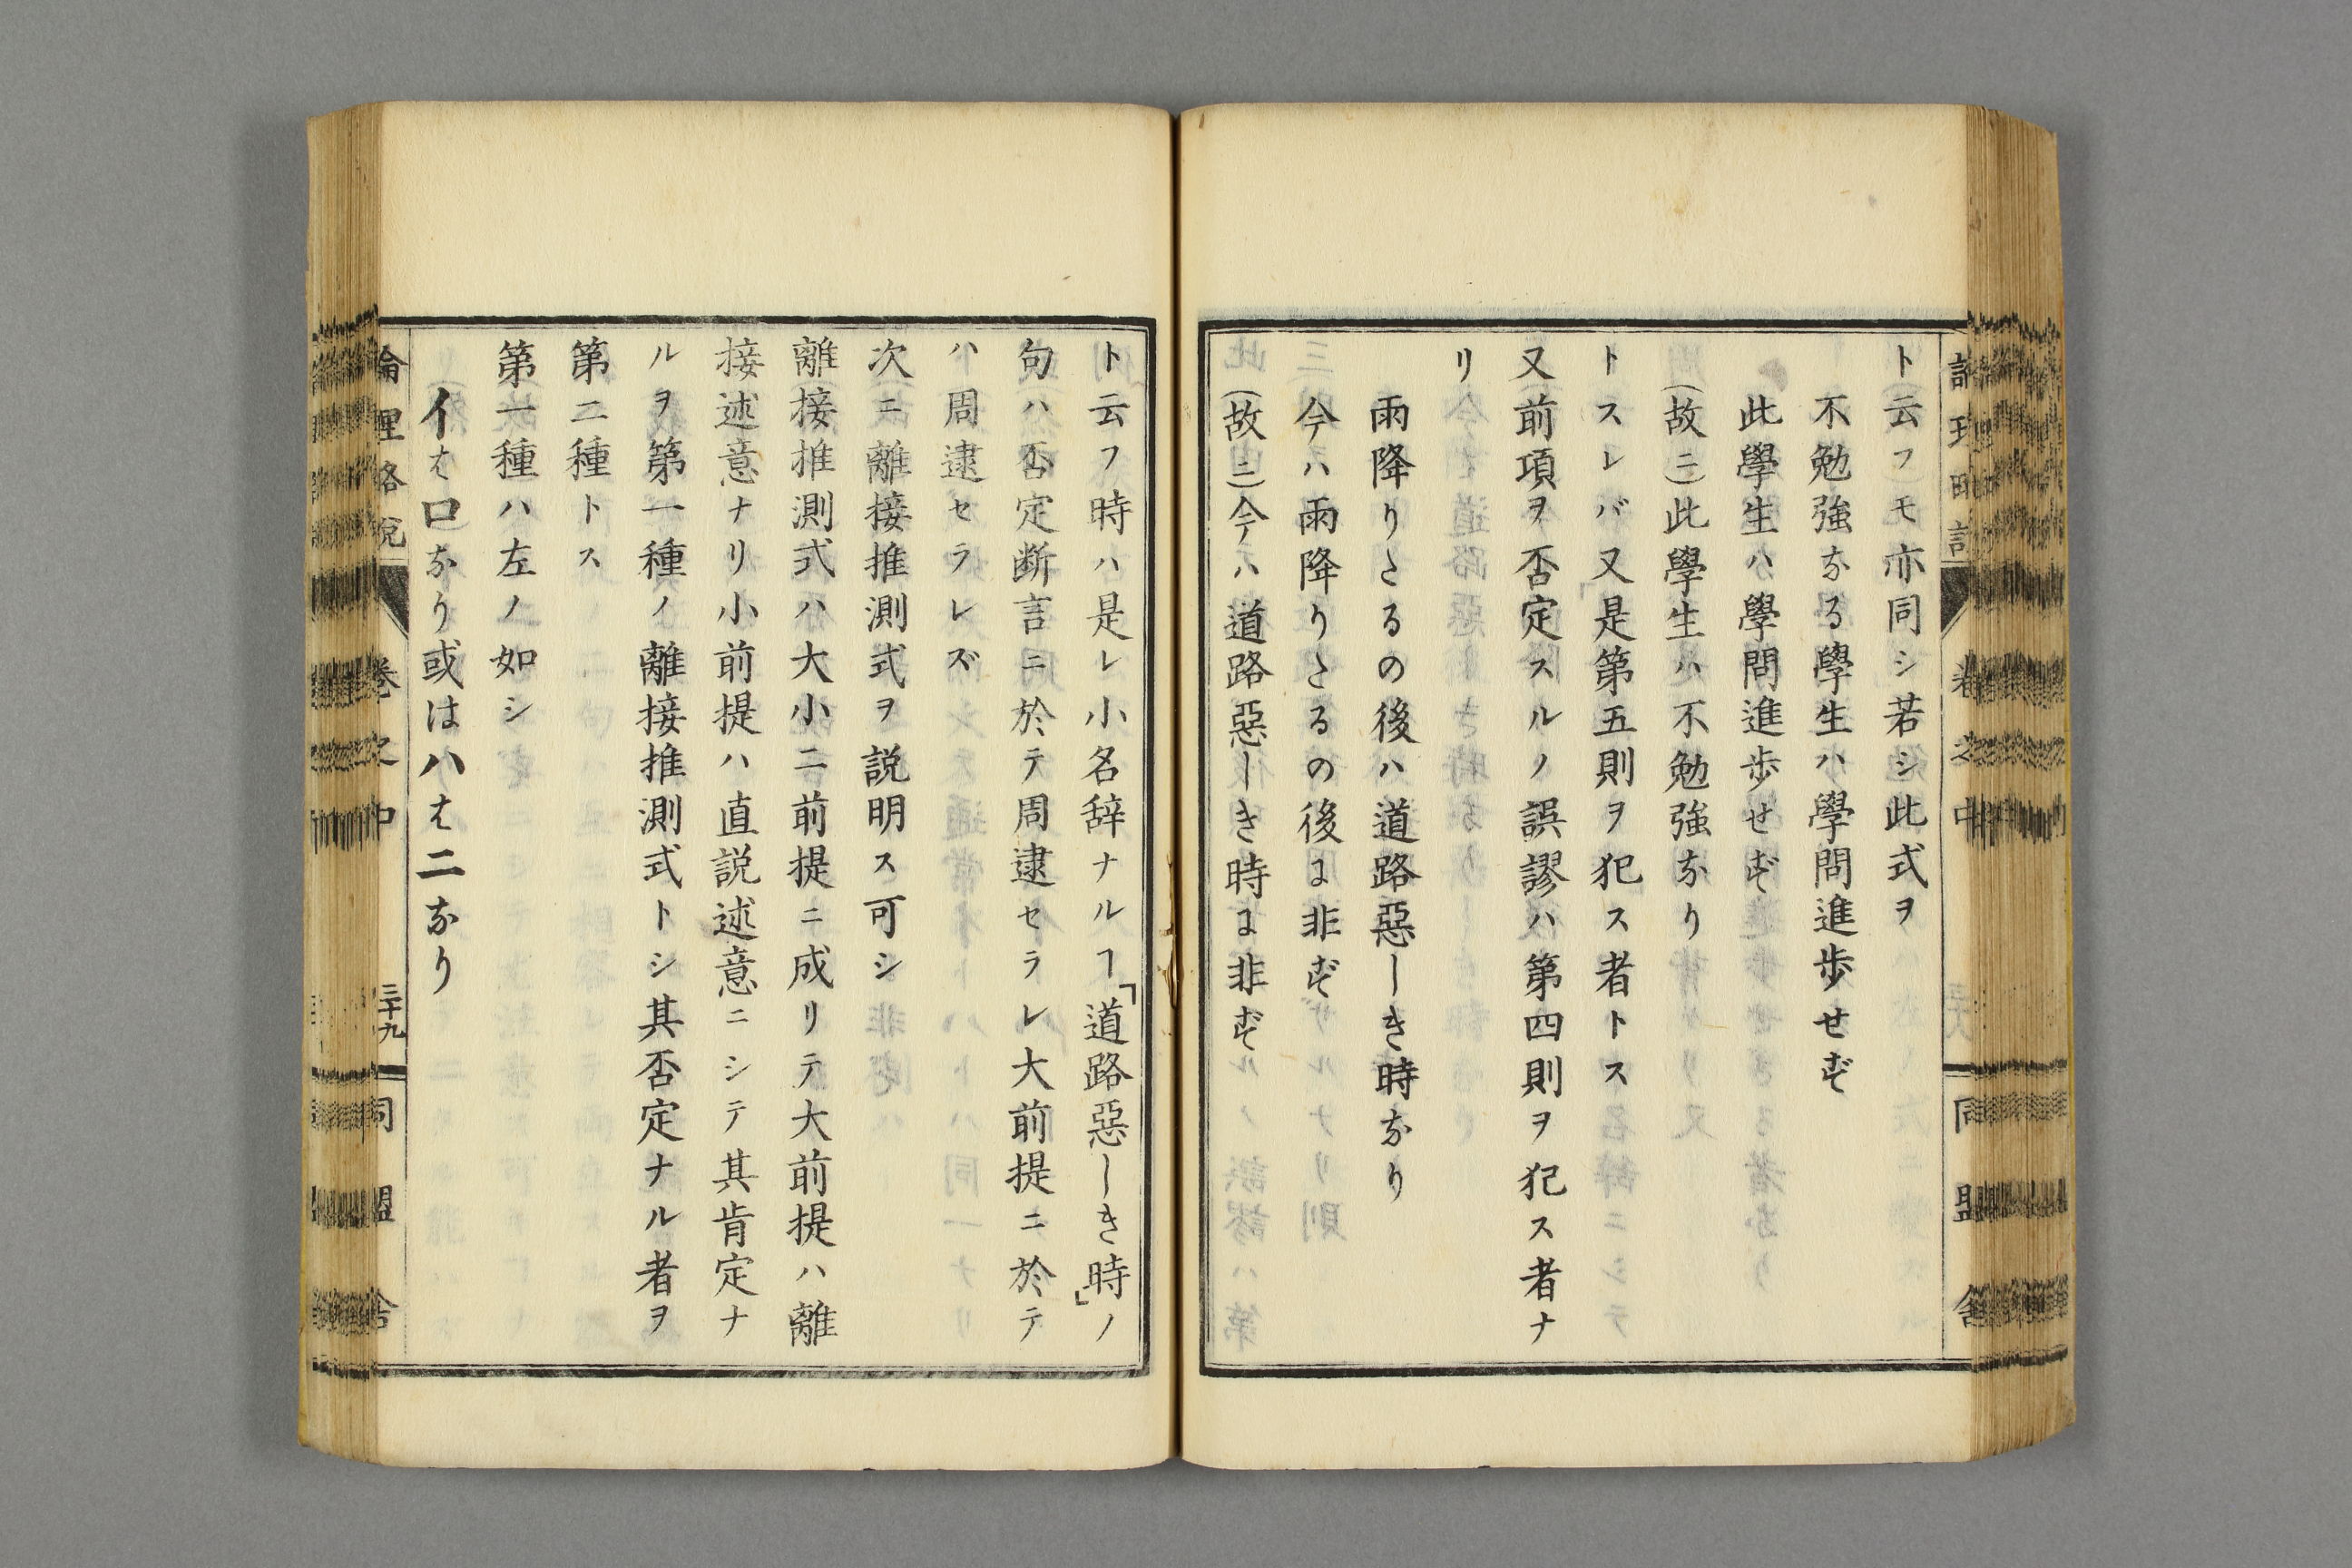 ト云フモ亦同シ若シ此式ヲ
不勉強なる學生ハ學問進歩せず
此學生ハ學問進歩せず
(故ニ)此學生ハ不勉強なり
トスレバ又是第五則ヲ犯ス者トス
又前項ヲ否定スルノ誤謬ハ第四則ヲ犯ス者ナ
リ
雨降りたるの後ハ道路惡しき時なり
今ハ雨降りたるの後に非ず
(故ニ)今ハ道路惡しき時に非ず
ト云フ時ハ是レ小名辞ナルヿ「道路惡しき時」ノ
句ハ否定断言ニ於テ周逮セラレ大前提ニ於テ
ハ周逮セラレズ
次ニ離接推測式ヲ説明ス可シ
離接推測式ハ大小二前提ニ成リテ大前提ハ離
接述意ナリ小前提ハ直説述意ニシテ其肯定ナ
ルヲ第一種ノ離接推測式トシ其否定ナル者ヲ
第二種トス
第一種ハ左ノ如シ
イはロなり或はハはニなり
論理略説 卷之中 三十九 同盟舎